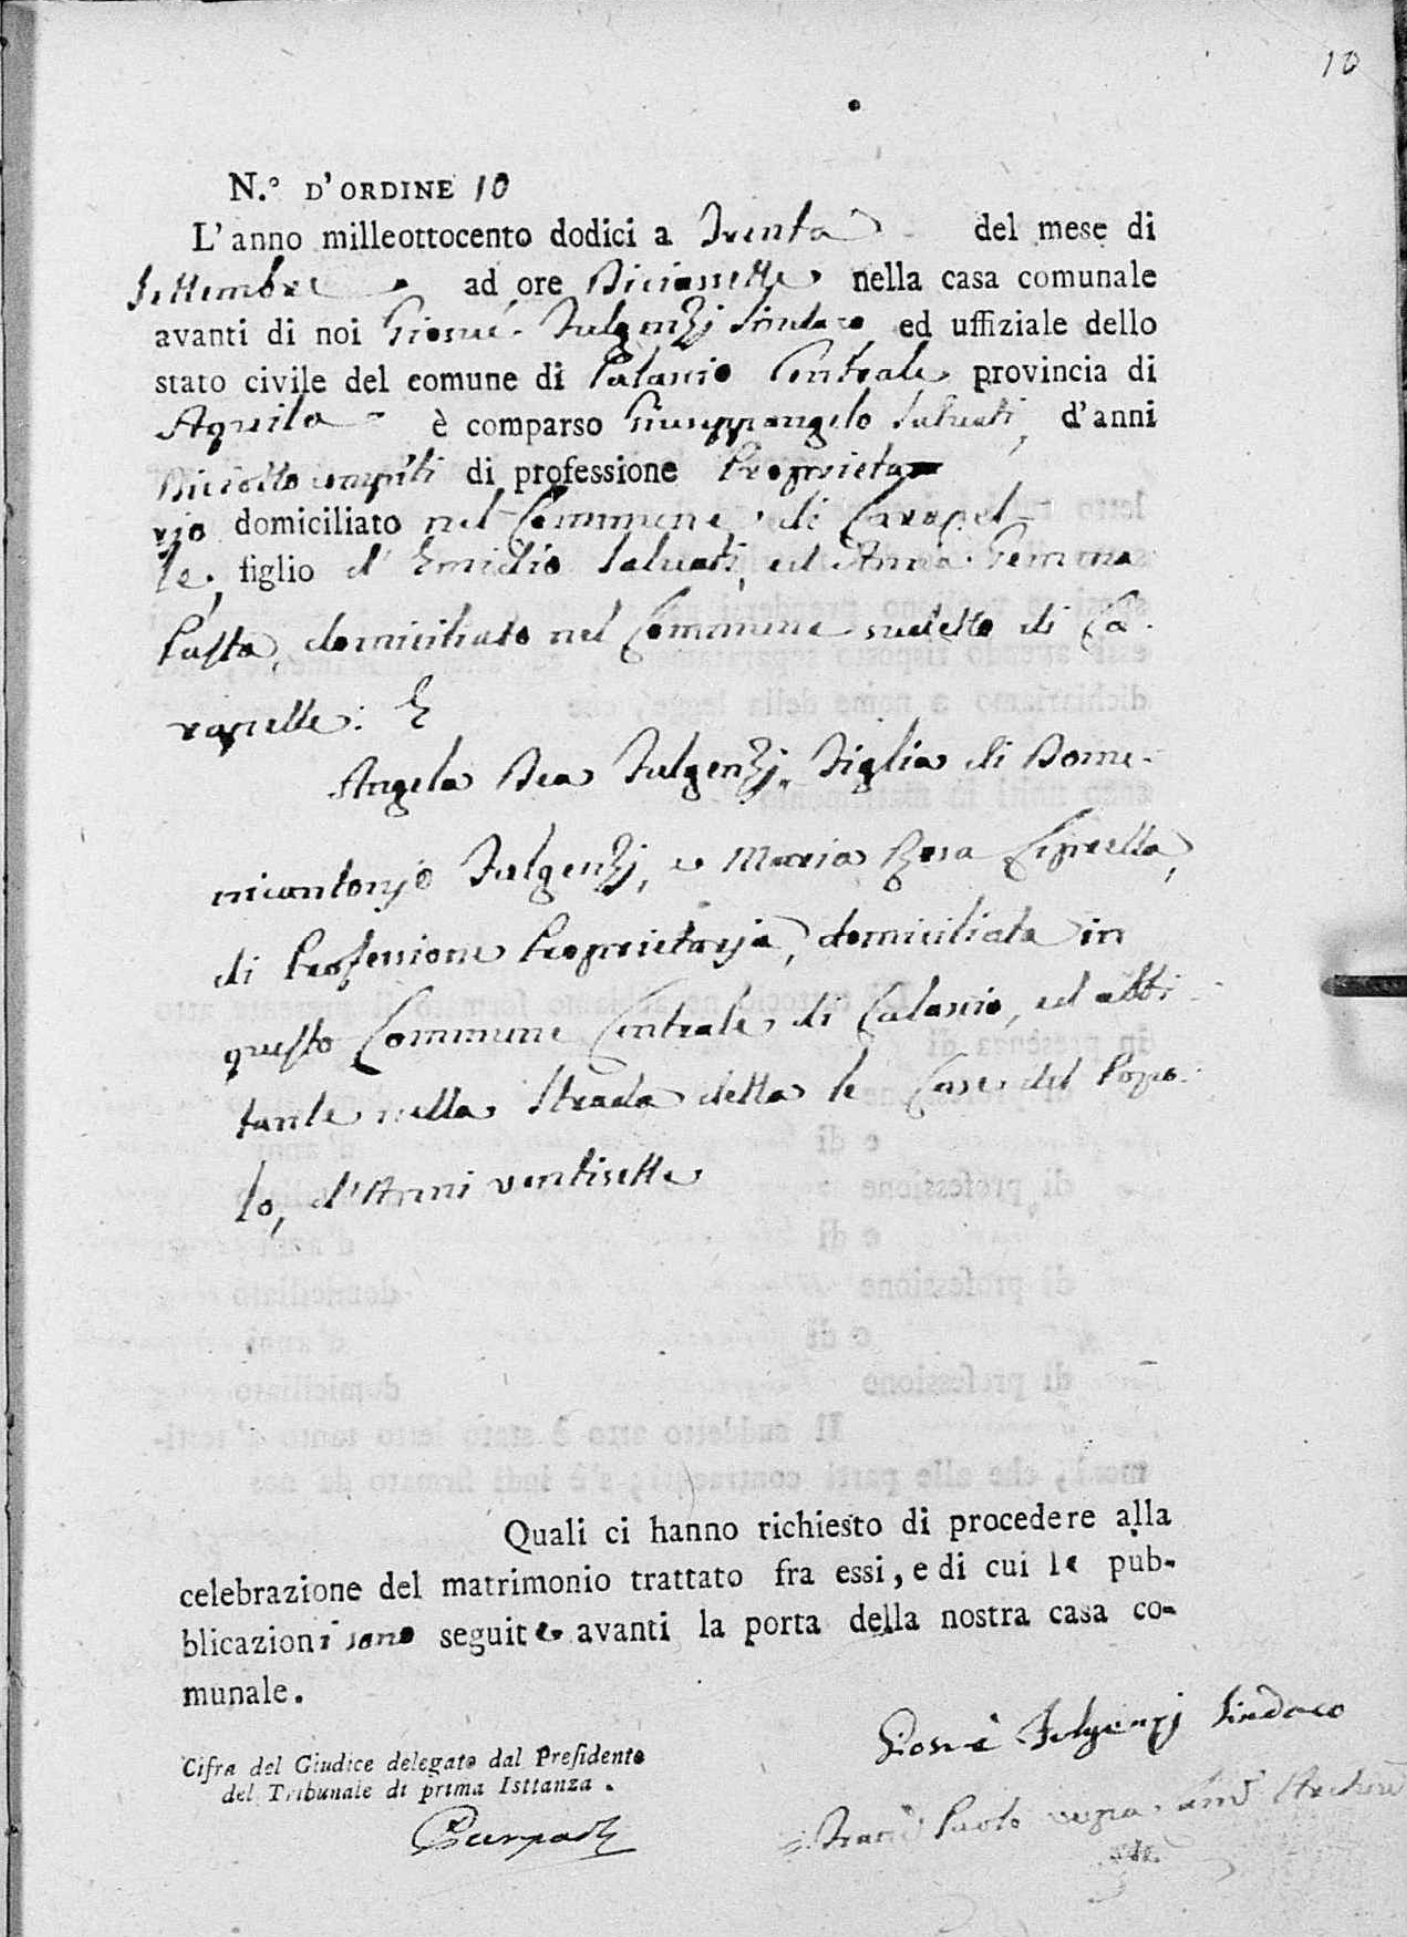 10
N.º D'ORDINE 10
L'anno milleottocento dodici a Trenta del mese di
Settembre ad ore Diciassette nella casa comunale
avanti di noi Giosuè Fulgenzj Sindaco ed uffiziale dello
stato civile del comune di Calascio Centrale provincia di
Aquila è comparso Giuseppangelo Salvati, d'anni
Diciotto compiti di professione Proprieta
rio domiciliato nel Commune di Carapel
le, figlio d'Emidio Salvati, ed Anna Gemma
Pasta, domiciliato nel Commune sudetto di Ca
rapelle. E
Angela Dea Fulgenzj Figlia di Dome
nicantonjo Fulgenzj, e Maria Rosa Ciprella,
di Professione Proprietarja, domiciliata in
questo Commune Centrale di Calascio, ed abbi
tante nella Strada detta le Case del Popo
lo, d'Anni ventisette
Quali ci hanno richiesto di procedere alla
celebrazione del matrimonio trattato fra essi, e di cui le pub-
blicazioni sono seguite avanti la porta della nostra casa co-
munale.
Giosuè Fulgenzj Sindaco
Cifra del Giudice delegato dal Presidente
del Tribunale di prima Isttanza.
Paolo